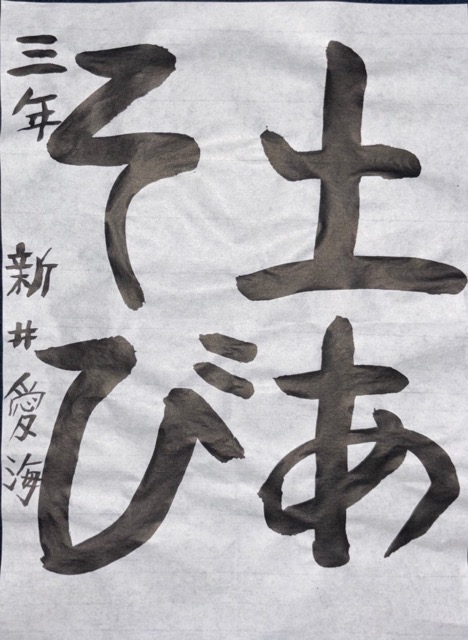 土あ
そび
三年 新井愛海